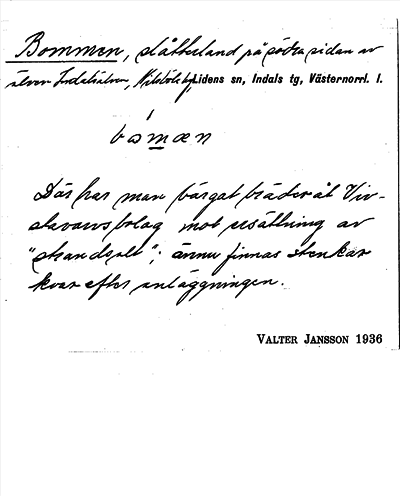 Bommen, slåtterland på södra sidan av
älven Indalsälven, Lidens sn, Indals tg, Västernorrl. l.
bɷmæn
Där har man bärgat bräder åt Viv-
stavarvsbolag mot ersättning av
"strandsatt"; ännu finnas stenkar
kvar efter anläggningen.
VALTER JANSSON 1936